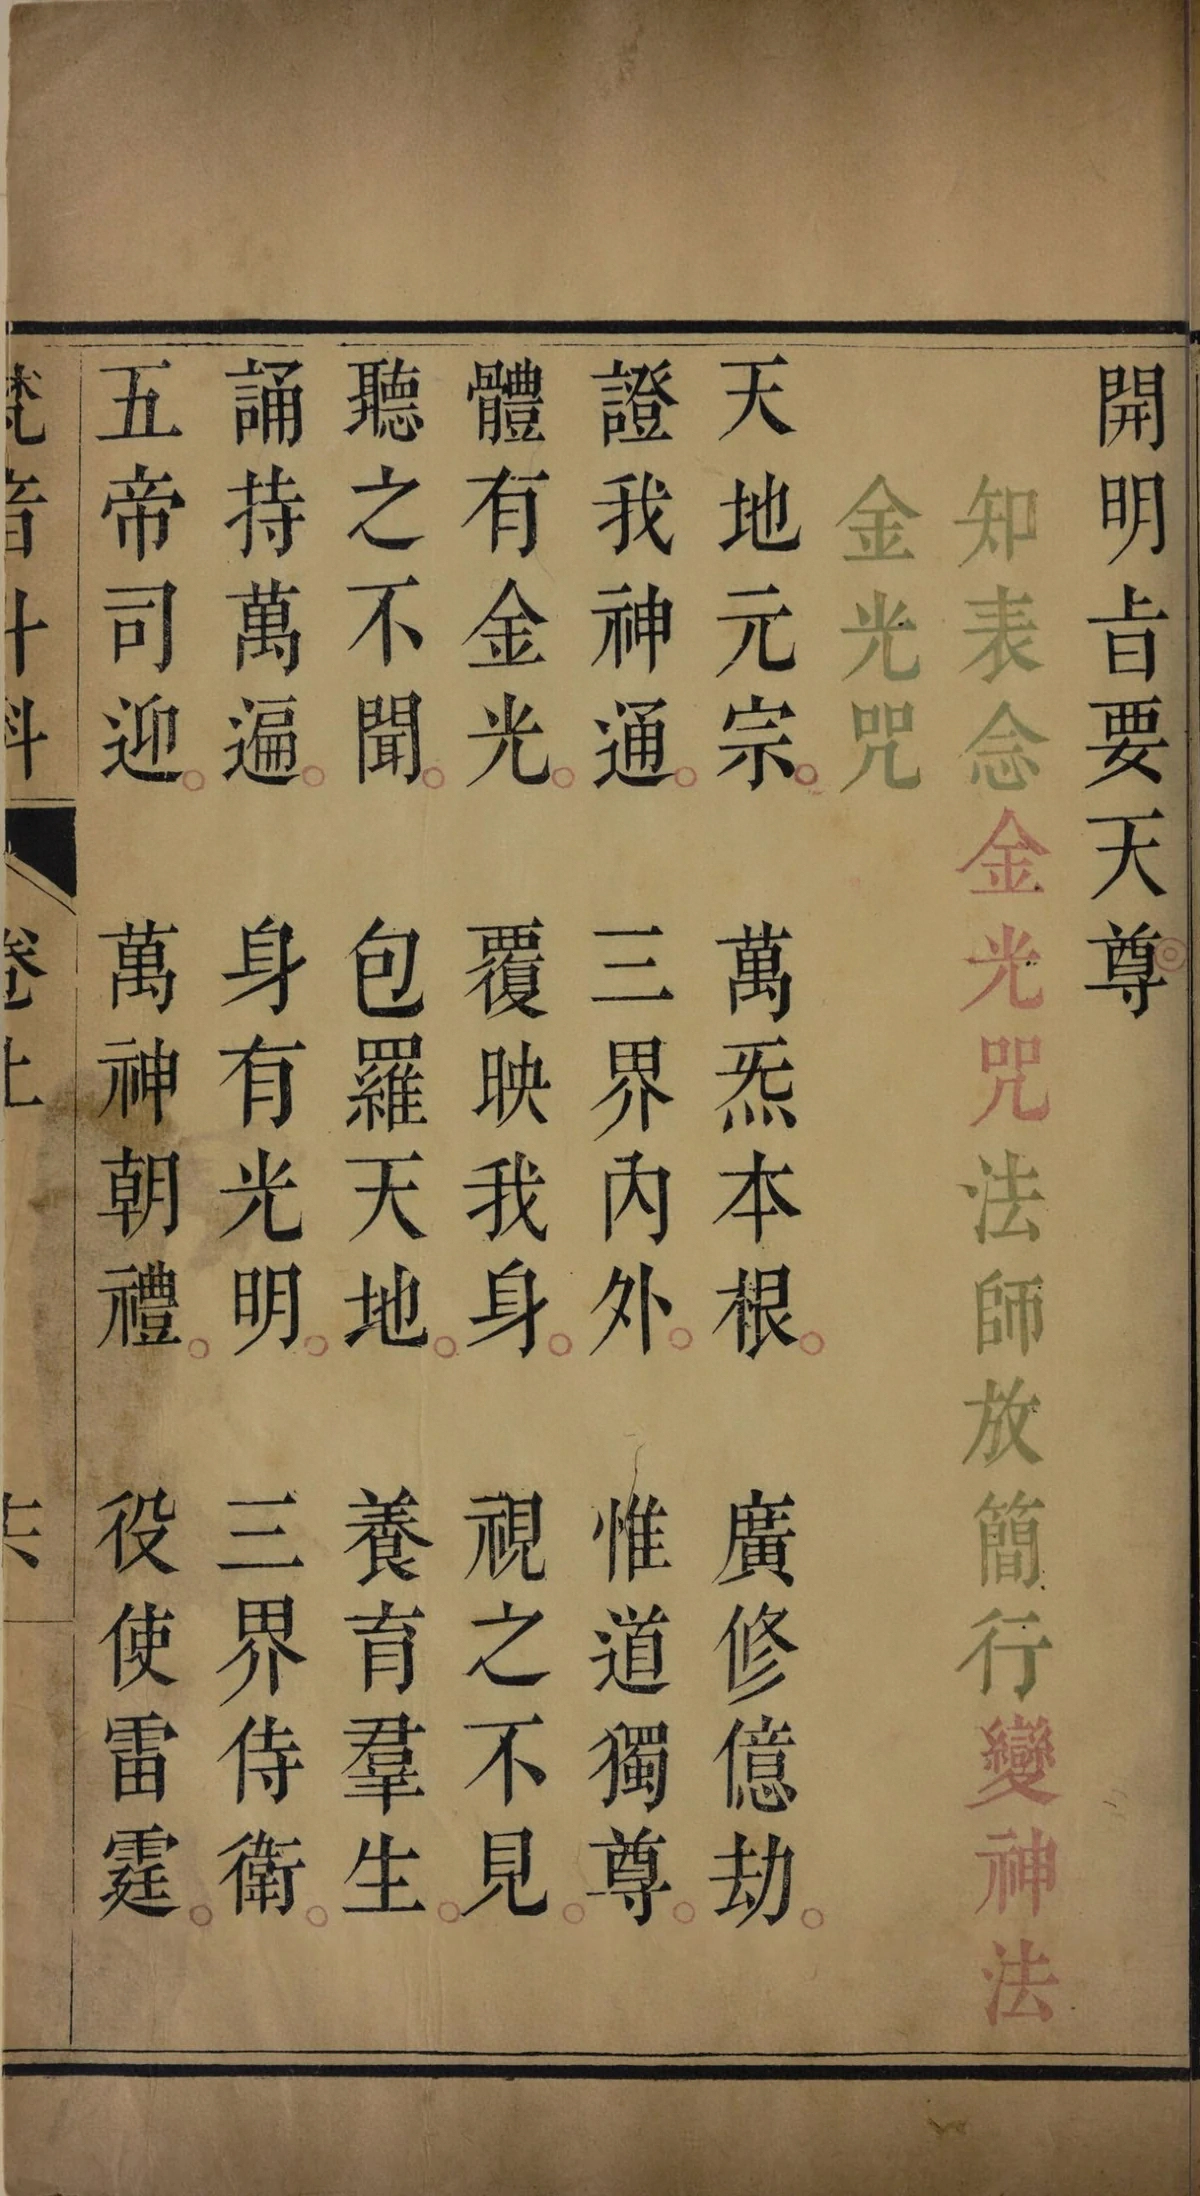 開明㫖要天尊
知表念金光咒法師放簡行變神法
金光咒
天地元宗。 萬炁本根。 廣修億劫。
證我神通。 三界內外。 惟道獨尊。
體有金光。 覆映我身。 視之不見。
聽之不聞。 包羅天地。 養育羣生。
誦持萬遍。 身有光明。 三界侍衛。
五帝司迎。 萬神朝禮。 役使雷霆。
梵音斗科 卷上